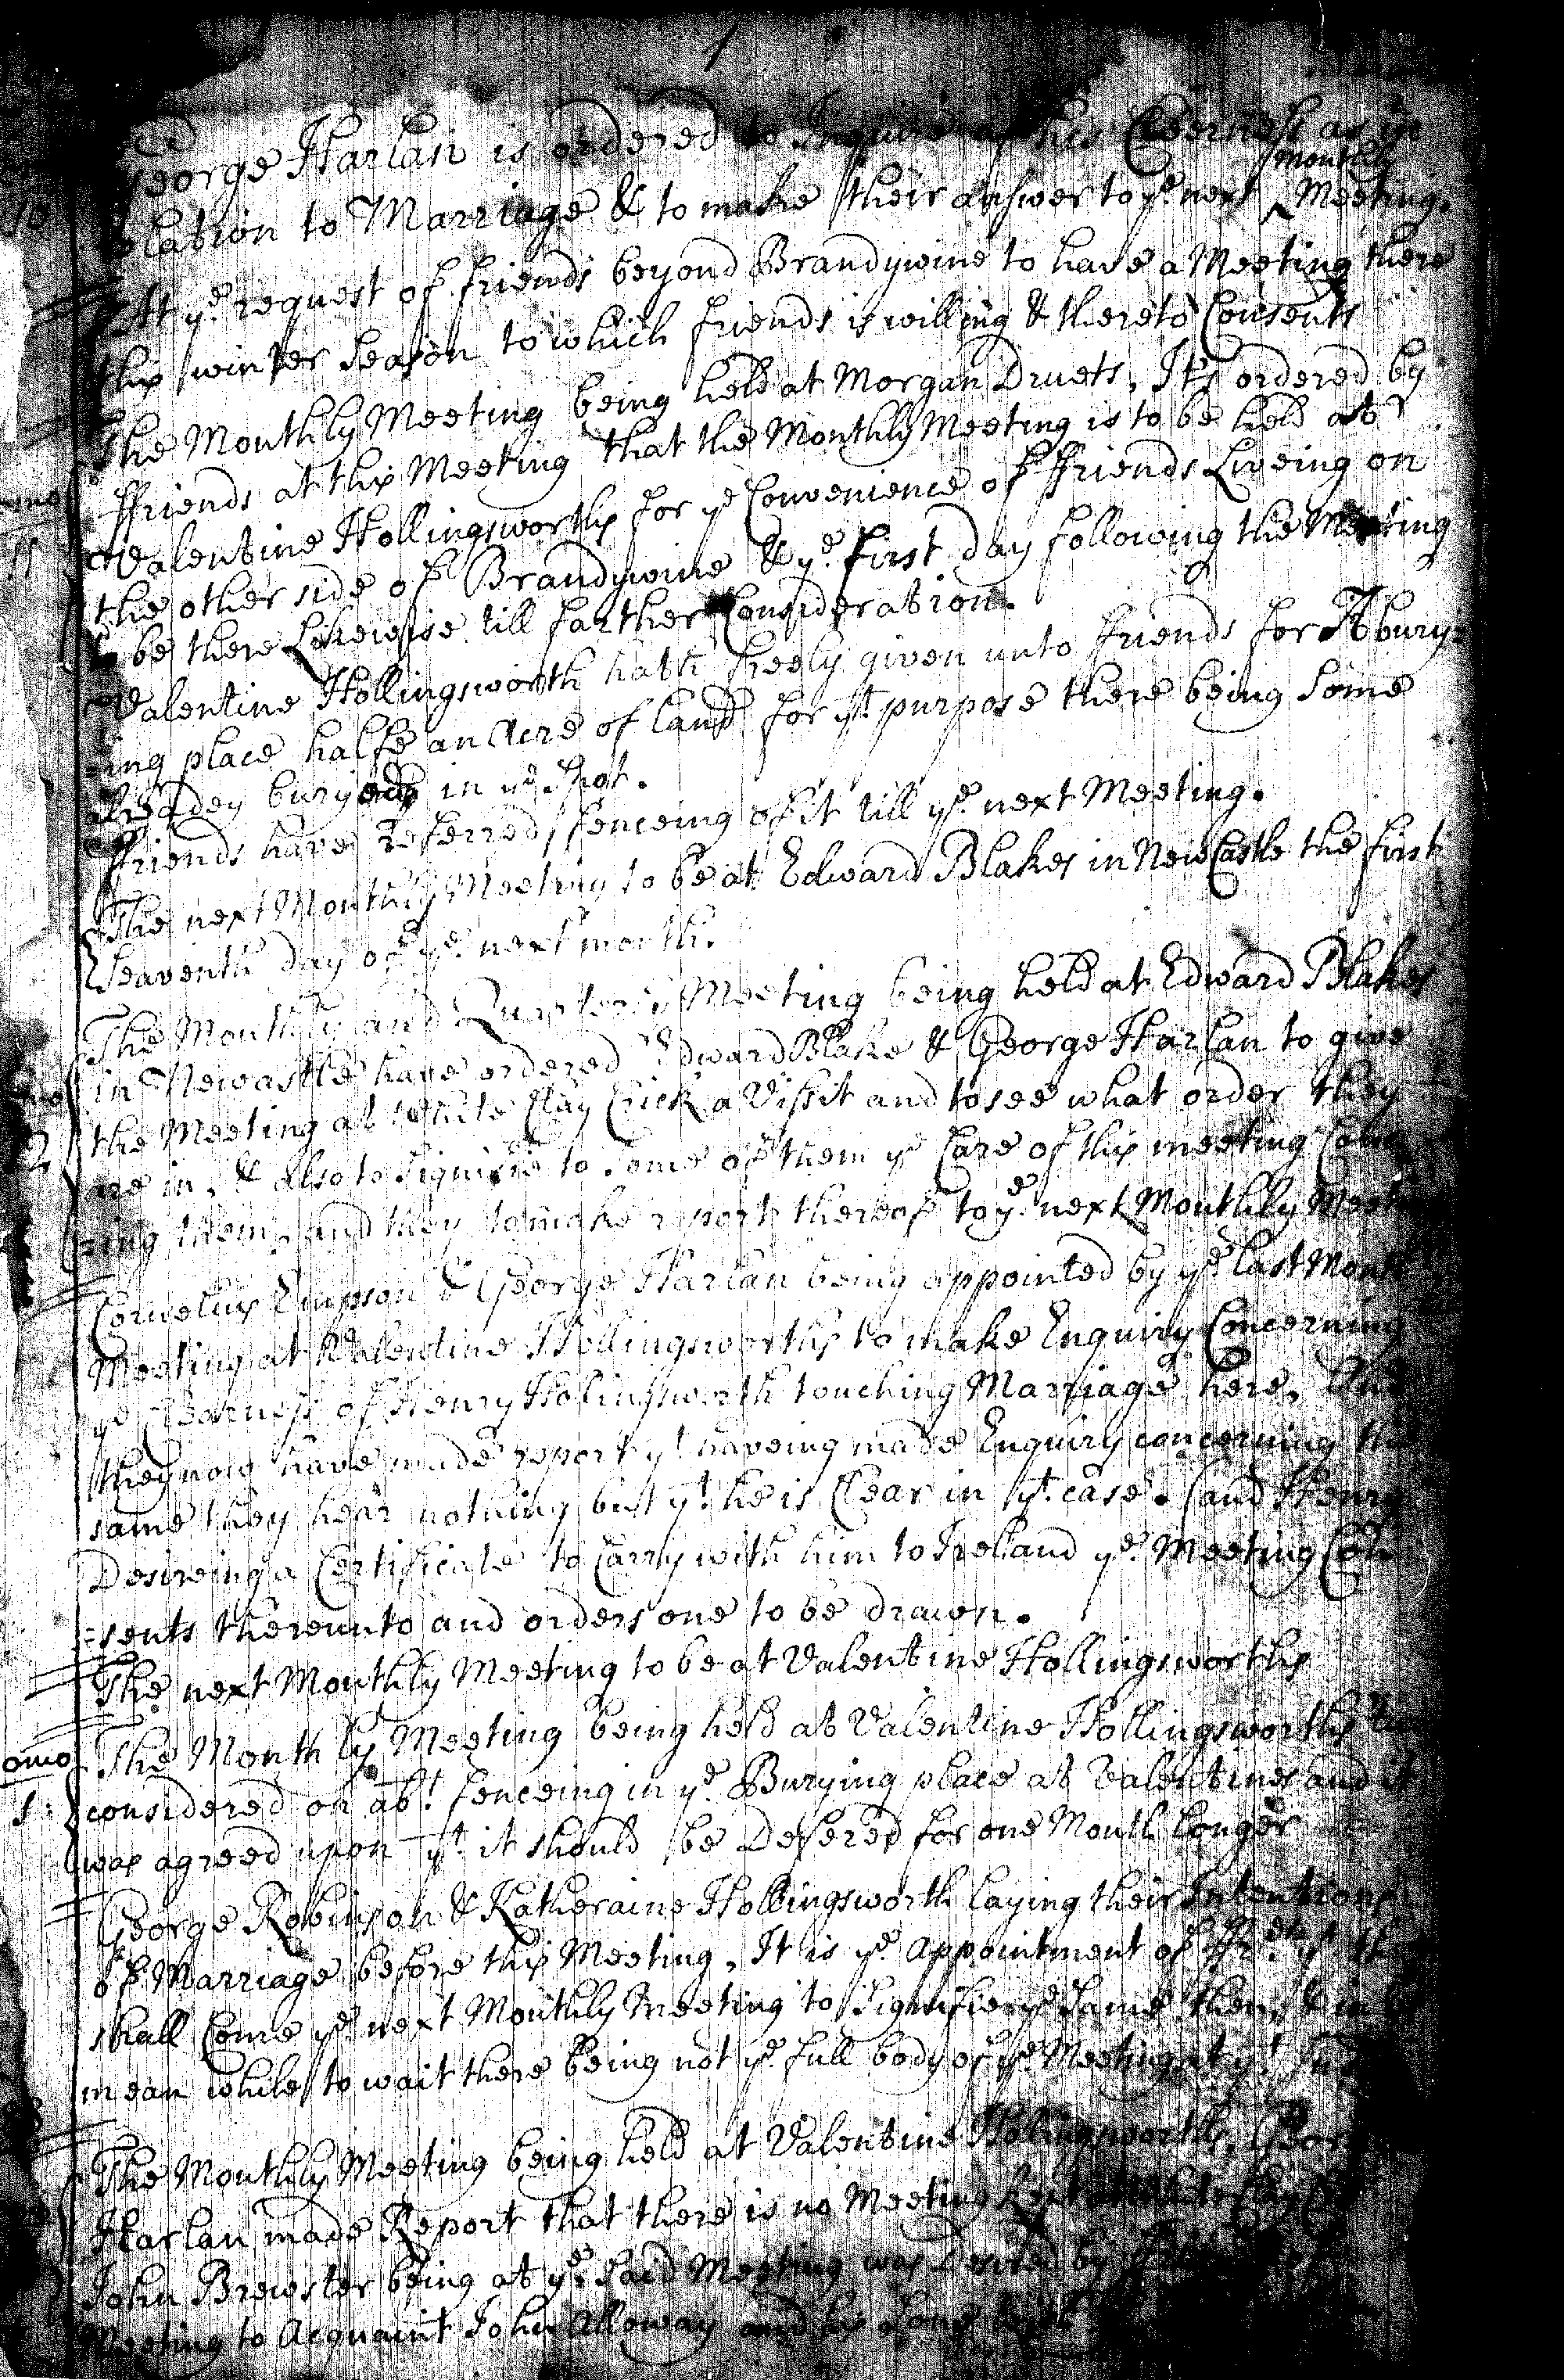 George Harlan is ordered to Inquire of his Cleerness as in
relation to Marriage & to make their answer to ye next ^ Monthly Meeting.
Att ye request of friends beyond Brandywine to have a Meeting there
this winter Season to which friends is willing & thereto Consents
The Monthly Meeting being held at Morgan Druets, It's ordered by
ffriends at this Meeting that the Monthly Meeting is to be held at
Valentine Hollingsworths for ye Convenience of ffriends Liveing on
the other side of Brandywine & ye first day following the Meeting
to be there Likewise till farther Consideration.
Valentine Hollingsworth hath freely given unto friends for A bury=
=ing place halfe an Acre of land for yt purpose there being Some
already buryed in ye Spot.
ffriends have Referred fenceing of it till ye next Meeting.
The next Monthly Meeting to be at Edward Blakes in NewCastle the first
Seaventh day of ye next month.
The Monthly and Quarterly Meeting being held at Edward Blakes
in Newcastle have ordered Edward Blake & George Harlan to give
the Meeting at White Clay Crick a Vissit and to see what order they
are in, & also to Signifie to Some of them ye Care of this meeting
=ing them, and they to make report thereof to ye next Monthly Meeting
Cornelius Empson & George Harlan being appointed by ye last
Meeting at Valentine Hollingsworths to make Enquiry Concerning
ye Clearness of Henry Hollingsworth touching Marriage here, And
they now have made report yt haveing made Enquiry concerning the
same they hear nothing but yt he is Clear in yt case. and Henry
Desireing a Certificate to Carry with him to Ireland ye Meeting Con
=sents thereunto and orders one to be drawn.
The next Monthly Meeting to be at Valentine Hollingsworths
The Monthly Meeting being held at Valentine Hollingsworths
considered on abt fenceing in ye Burying place at Valentines and it
was agreed upon yt it should be Defered for one Month longer
George Robinson & Katheraine Hollingsworth laying their Intentions
of Marriage before this Meeting, It is ye appointment of
shall Come ye next Monthly Meeting to Signifie ye Same then, & in
mean while to wait there being not ye full body of ye Meeting at yt
The Monthly Meeting being held at Valentine Hollingsworths, George
Harlan made Report that there is no Meeting kept at White Clay
John Brewster being at ye Said Meeting was Desired by
Meeting to Acquaint John Alloway and